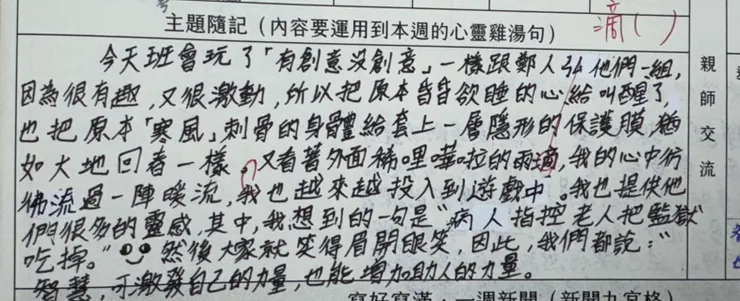 滴( )
主題隨記(內容要運用到本週的心靈雞湯句)
今天班會玩了「有創意沒創意」一樣跟鄰人 他們一組,
因為很有趣,又很激動,所以把原本昏昏欲睡的心給叫醒了,
也把原本「寒風」刺骨的身體給套上一層隱形的保護膜,猶
如大地回春一樣。又看著外面稀哩嘩啦的雨滴,我的心中彷
彿流過一陣暖流,我也越來越投入到遊戲中。我也提供他
們很多的靈感,其中,我想到的一句是“病人指控老人把監獄
吃掉。”然後大家就笑得眉開眼笑,因此,我們都說:“
智慧,可激發自己的力量,也能增加助人的力量。
親師交流